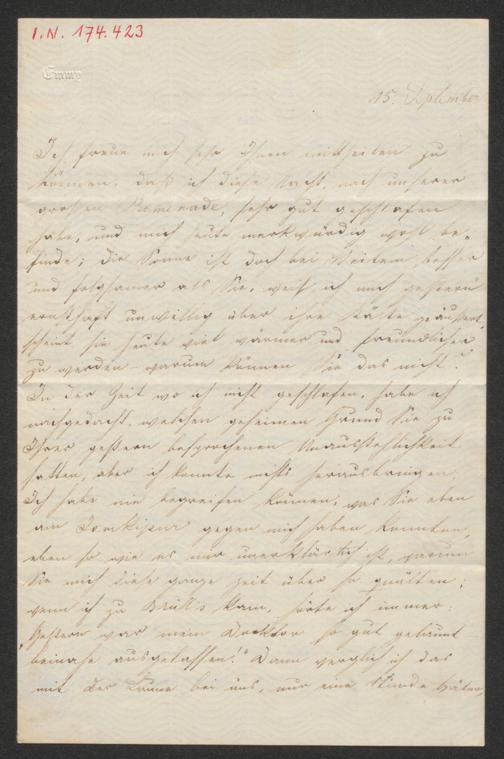 I.N. 174.423
Emmy
15. September
Ich freue mich sehr Ihnen mittheilen zu
können, daß ich diese Nacht, nach unserer
großen Promenade, sehr gut geschlafen
habe, und mich heute merkwürdig wohl be-
finde; die Sonne ist doch bei Weitem besser
und folgsamer als Sie, weil ich mich gestern
ernsthaft unwillig über ihre Kälte geäußert,
scheint sie heute viel wärmer und freundlicher
zu werden warum können Sie das nicht?
In der Zeit wo ich nicht geschlafen, habe ich
nachgedacht, welchen geheimen Grund Sie zu
Ihrer gestern besprochenen Unausstehlichkeit
hatten, aber ich konnte nichts herausbringen;
Ich habe nie begreifen können, was Sie eben
am Jomkipur gegen mich haben konnten,
eben so wie es mir unerklärlich ist, warum
Sie mich diese ganze Zeit über so quälten;
wenn ich zu Brülls kam, hörte ich immer:
"Gestern war mein Docktor so gut gelaunt
beinahe ausgelassen." Dann verglich ich das
mit der Laune bei uns, nur eine Stunde später,